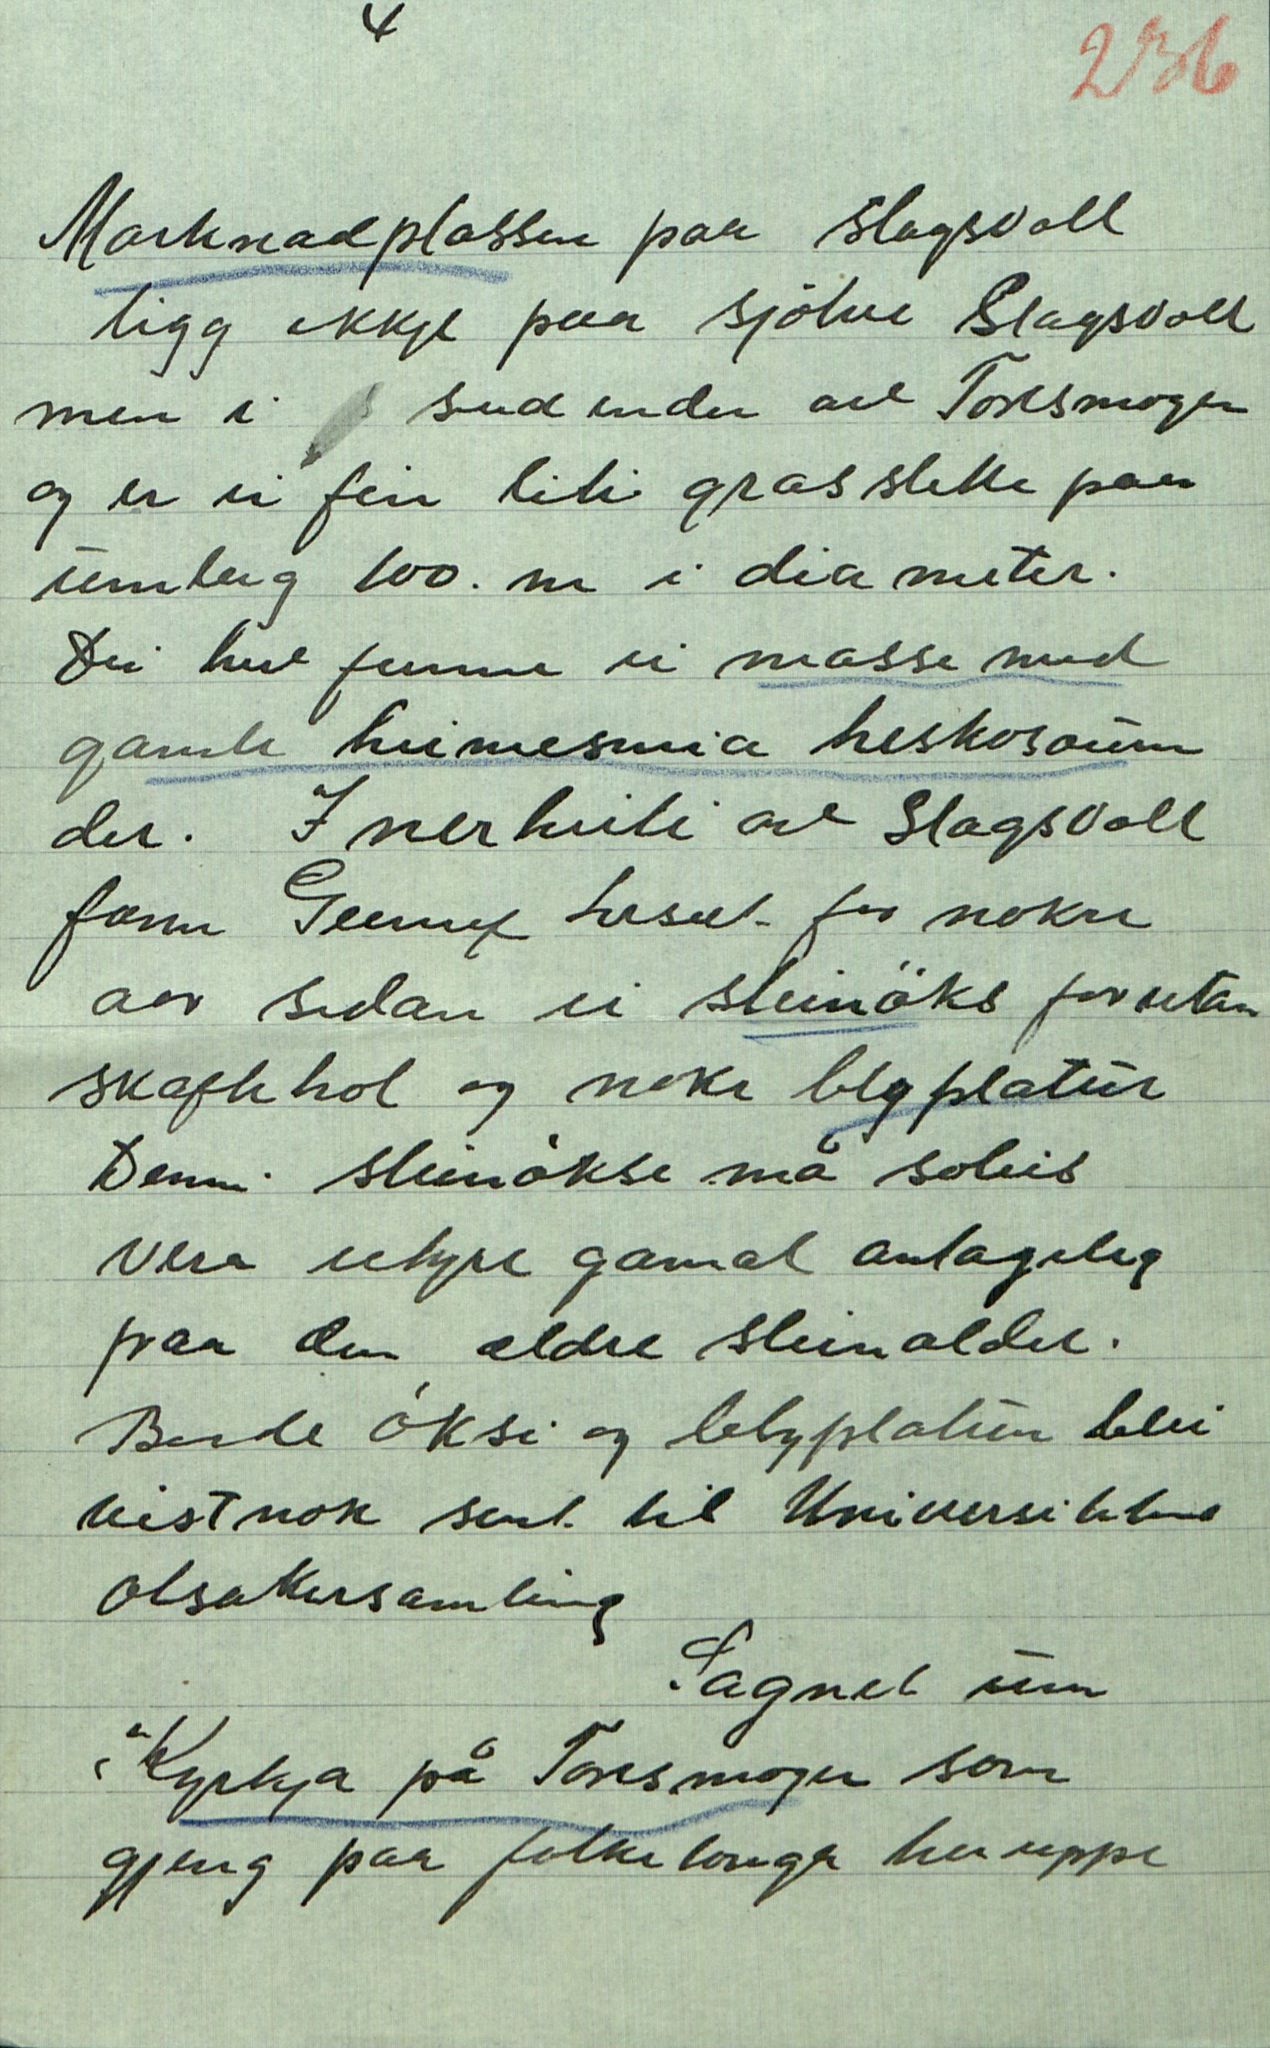 4
236
Marknadplassen paa Slagsvoll
ligg ikkje paa sjölve Slagsvoll
men i sudenden av Toresmogen
og er ei fin liti grasslette paa
umlag 100. m i diameter.
Dei hev funne ei masse med
gamle heimesmia heskosaum
der. I nerheiti av Slagsvoll
fann loset for nokre
aar sidan ei steinöks forutan
skaftehol og nokre blyplatur
Denni steinökse må soleis
vera utyre gamal antageleg
fraa den ældre steinalder.
Baade öksi og blyplatun blei
vistnok sent til Universitetets
olsakersamling
Sagnet um
"Kyrkja på Toresmogen som
gjeng paa folketonga her uppe